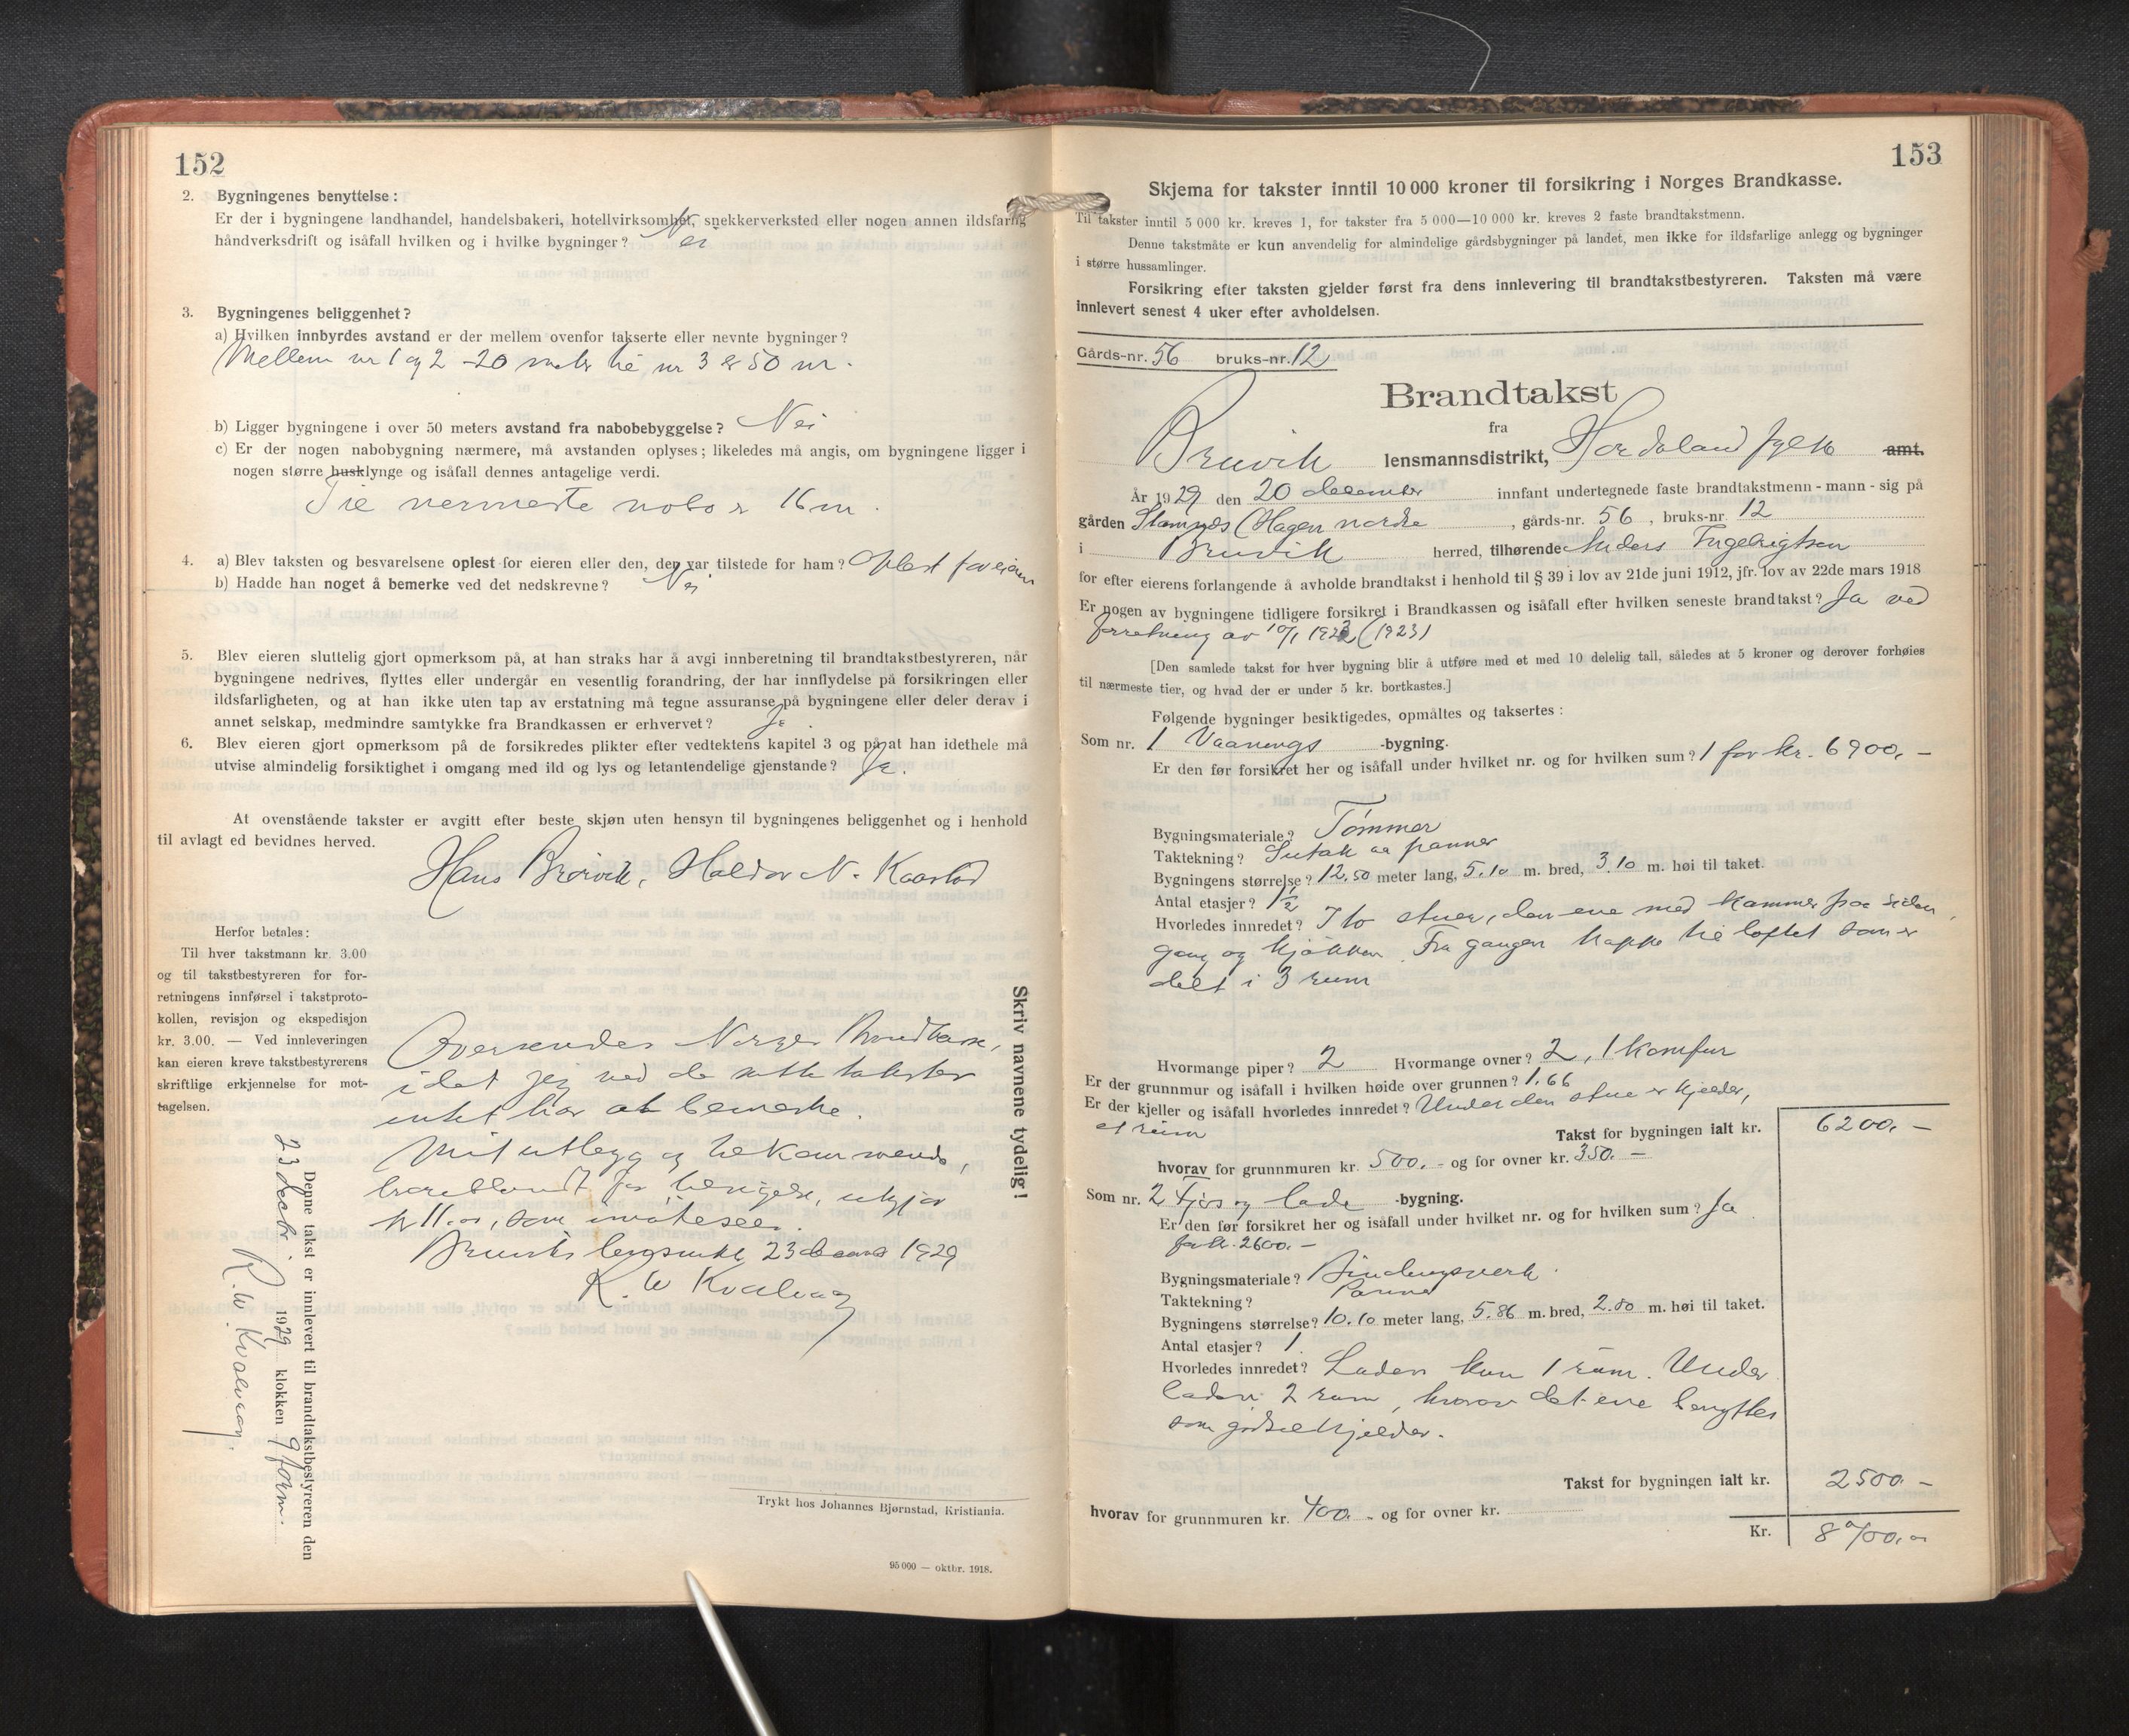 152
2. Bygningenes benyttelse :
Er der i bygningene landhandel, handelsbakeri, hotellvirksomhet, snekkerverksted eller nogen annen ildsfarlig
håndverksdrift og isåfall hvilken og i hvilke bygninger? Nei
3. Bygningenes beliggenhet?
a) Hvilken innbyrdes avstand er der mellem ovenfor takserte eller nevnte bygninger?
Mellem nr 1 og 2 - 20 meter til nr 3 er 50 m.
b) Ligger bygningene i over 50 meters avstand fra nabobebyggelse? Nei
c) Er der nogen nabobygning nærmere, må avstanden oplyses; likeledes må angis, om bygningene ligger i
nogen større husklynge og isåfall dennes antagelige verdi.
Til nermeste nabo er 16 m.
4. a) Blev taksten og besvarelsene oplest for eieren eller den, der var tilstede for ham? Oplest for eieren
b) Hadde han noget å bemerke ved det nedskrevne? Nei
5. Blev eieren sluttelig gjort opmerksom på, at han straks har å avgi innberetning til brandtakstbestyreren, når
bygningene nedrives, flyttes eller undergår en vesentlig forandring, der har innflydelse på forsikringen eller
ildsfarligheten, og at han ikke uten tap av erstatning må tegne assuranse på bygningene eller deler derav i
annet selskap, medmindre samtykke fra Brandkassen er erhvervet? Ja
6. Blev eieren gjort opmerksom på de forsikredes plikter efter vedtektens kapitel 3 og på at han idethele må
utvise almindelig forsiktighet i omgang med ild og lys og letantendelige gjenstande? Ja.
At ovenstående takster er avgitt efter beste skjøn uten hensyn til bygningenes beliggenhet og i henhold
til avlagt ed bevidnes herved.
Hans Brørvik, Haldor N. Kaarstad
Herfor betales:
Til hver takstmann kr. 3.00
og til takstbestyreren for for-
retningens innførsel i takstproto-
kollen, revisjon og ekspedisjon
kr. 3.00. — Ved innleveringen
kan eieren kreve takstbestyrerens
skriftlige erkjennelse for mot-
tagelsen.
Oversendes Norges Brandkasse,
idet jeg ved de satte takster
intet har at bemerke.
Mit utlegg og tilkommende,
heriblandt for besigtelse, utgjør
kr 11.00, som
Bruviks 23 1929
R. W Kvalvaag
Skriv navnene tydelig!
Denne takst er innlevert til brandtakstbestyreren den
23 decbr. 1929 klokken 9 form.
R. W. Kvalvaag.
Trykt hos Johannes Bjørnstad, Kristiania.
95 000 — oktbr. 1918.
153
Skjema for takster inntil 10 000 kroner til forsikring i Norges Brandkasse.
Til takster inntil 5 000 kr. kreves 1, for takster fra 5 000—10 000 kr. kreves 2 faste brandtakstmenn.
Denne takstmåte er kun anvendelig for almindelige gårdsbygninger på landet, men ikke for ildsfarlige anlegg og bygninger
i større hussamlinger.
Forsikring efter taksten gjelder først fra dens innlevering til brandtakstbestyreren. Taksten må være
innlevert senest 4 uker efter avholdelsen.
Gårds-nr. 56 bruks-nr. 12
Brandtakst
fra
Bruvik lensmannsdistrikt, Hordaland fylke amt.
År 1929 den 20 december innfant undertegnede faste brandtakstmenn - mann - sig på
gården Stamnes (Hagen nordre , gårds-nr. 56 , bruks-nr. 12
i Bruvik herred, tilhørende Anders Ingebrigtsen
for efter eierens forlangende å avholde brandtakst i henhold til § 39 i lov av 21de juni 1912, jfr. lov av 22de mars 1918
Er nogen av bygningene tidligere forsikret i Brandkassen og isåfall efter hvilken seneste brandtakst? Ja ved
forretning av 10/1 1922 (1923)
[Den samlede takst for hver bygning blir å utføre med et med 10 delelig tall, således at 5 kroner og derover forhøies
til nærmeste tier, og hvad der er under 5 kr. bortkastes.]
Følgende bygninger besiktigedes, opmåltes og taksertes :
Som nr. 1 Vaanings -bygning.
Er den før forsikret her og isåfall under hvilket nr. og for hvilken sum? 1 for kr. 6900,-
Bygningsmateriale? Tømmer
Taktekning? Sutak aa panner
Bygningens størrelse? 12.50 meter lang, 5.10 m. bred, 3.10 m. høi til taket.
Antal etasjer? 1½
Hvorledes innredet? I to stuer, den ene med kammer fra siden,
gang og kjøkken. Fra gangen trappe til loftet som er
delt i 3 rum
Hvormange piper? 2 Hvormange ovner? 2, 1 komfur
Er der grunnmur og isåfall i hvilken høide over grunnen? 1.66
Er der kjeller og isåfall hvorledes innredet? Under den stue er kjelder,
et rum
Takst for bygningen ialt kr. 6200,-
hvorav for grunnmuren kr. 500.- og for ovner kr. 350.-
Som nr. 2 Fjøs og lade -bygning.
Er den før forsikret her og isåfall under hvilket nr. og for hvilken sum? Ja
for kr. 2600.-
Bygningsmateriale? Bindingsverk
Taktekning? Panner
Bygningens størrelse? 10.10 meter lang, 5.86 m. bred, 2.80 m. høi til taket.
Antal etasjer? 1.
Hvorledes innredet? Laden kun 1 rum. Under
laden 2 rum, hvorav det ene benyttes
som gjødselkjelder.
Takst for bygningen ialt kr. 2500.-
hvorav for grunnmuren kr. 400.- og for ovner kr.
Kr. 8700.00